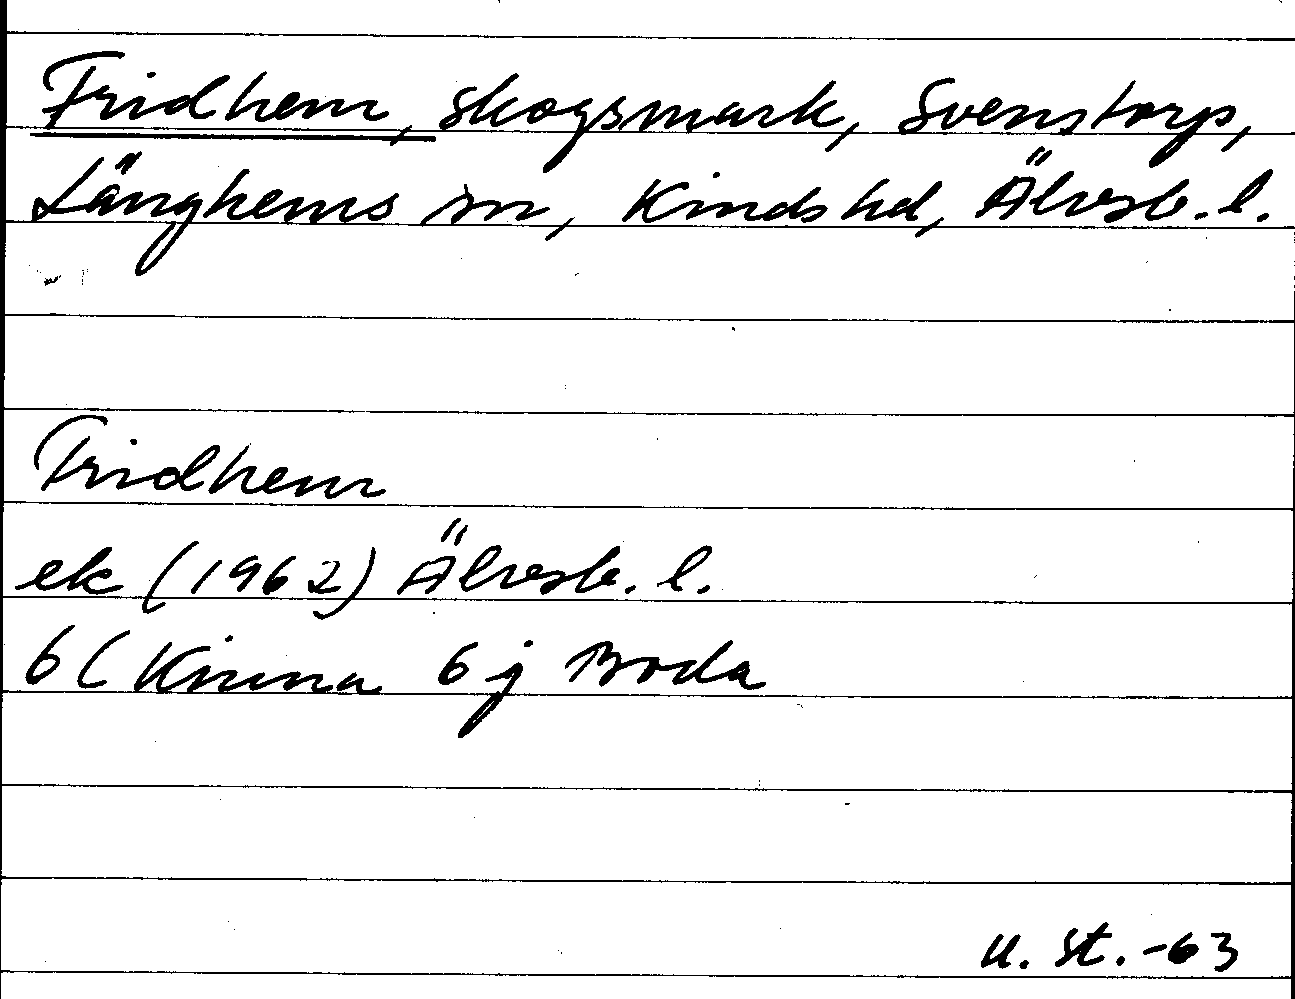 Fridhem, skogsmark, Svenstorp,
Länghems sn, Kinds hd, Älvsb. l.
Fridhem
ek (1962) Älvsb. l.
6 C Kinna 6 j Boda
U. St. -63